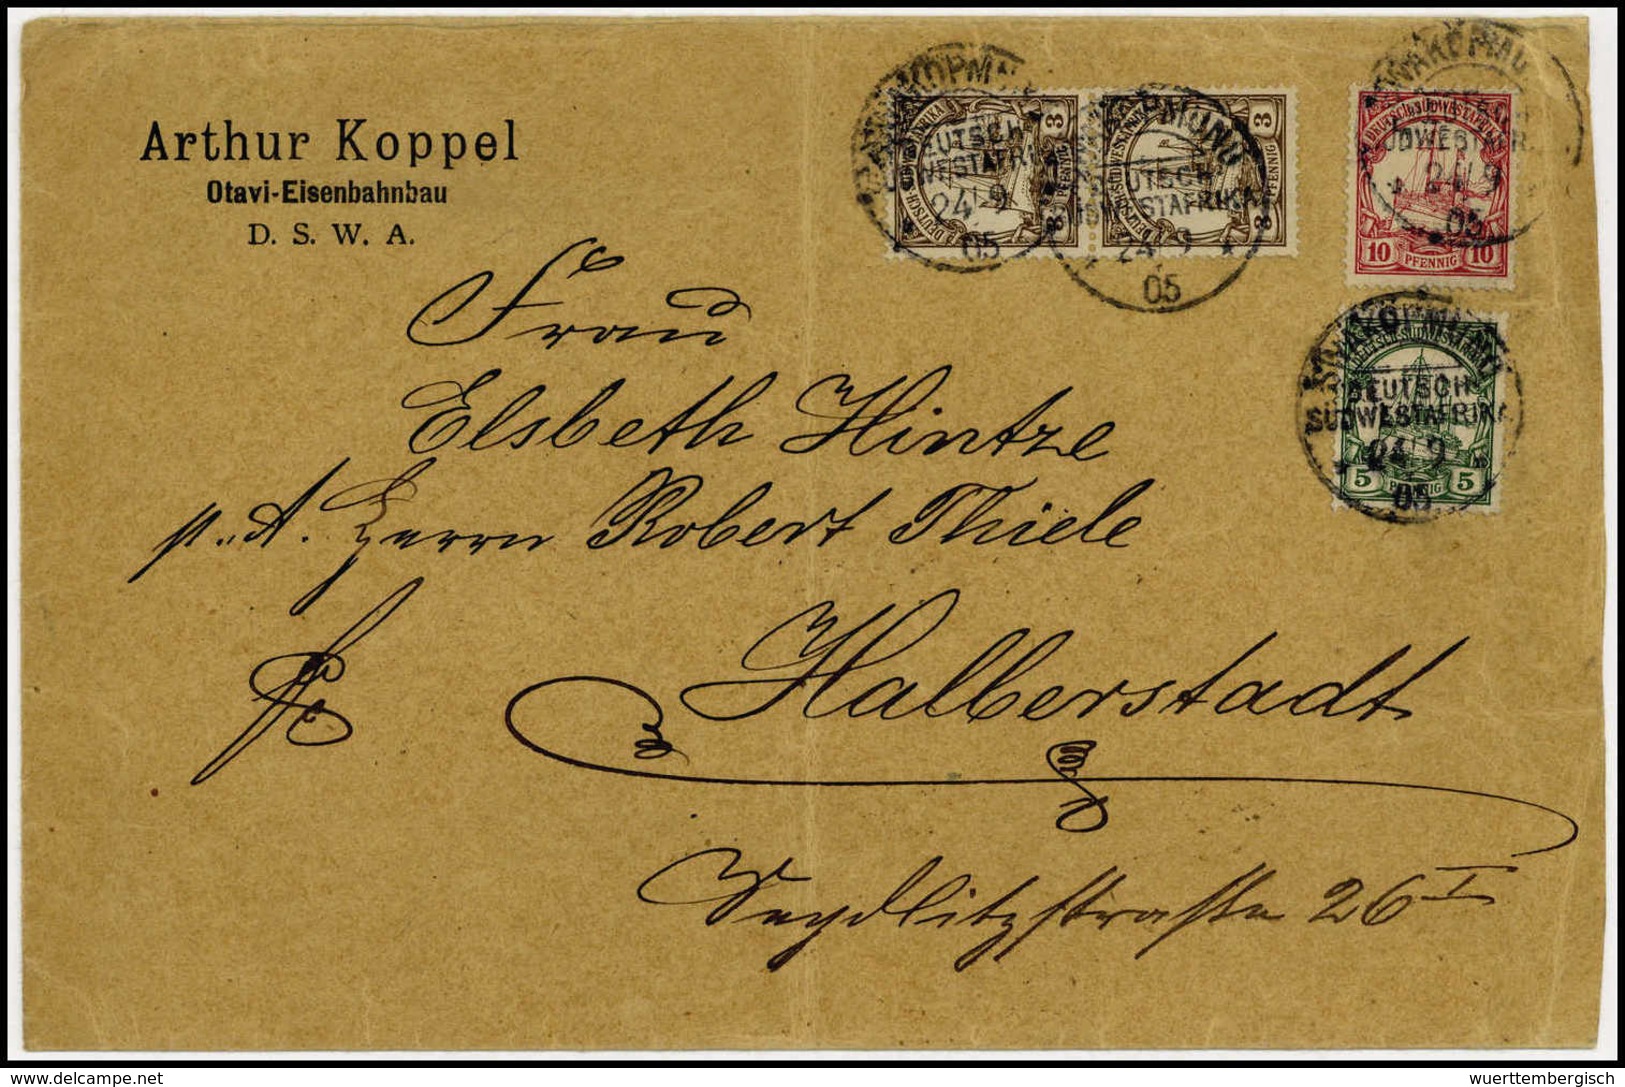 Arthur Koppel
Otavi-Eisenbahnbau
D. S. W. A.
SWAKOPMUND
DEUTSCH-
SÜDWESTAFRIKA
24 9
05
3 3
DEUTSCH-SÜDWESTAFRIKA
PFENNIG
SWAKOPMUND
DEUTSCH-
SÜDWESTAFRIKA
24 9
05
3 3
DEUTSCH-SÜDWESTAFRIKA
PFENNIG
SWAKOPMUND
SÜDWESTAFR
24 9
05
DEUTSCH-SÜDWESTAFRIKA
10 PFENNIG 10
SWAKOPMUND
DEUTSCH-
SÜDWESTAFRIKA
24 9
05
DEUTSCH-SÜDWESTAFRIKA
5 PFENNIG 5
Frau
Elsbeth Hintze
p. A. Herrn Robert Thiele
Halberstadt
Seydlitzstraße 26 I
delcampe.net
wuerttembergisch